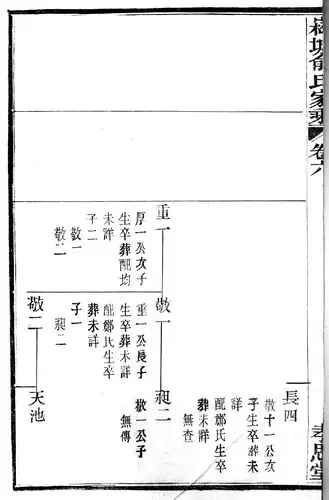 俞氏家乘
卷六
孝思堂
長四
敬十一公次
子生卒葬未
詳
配鄭氏生卒
葬未詳
無查
重一
厚一公次子
生卒葬配均
未詳
子二
敬一
敬二
敬一
重一公長子
生卒葬未詳
配鄭氏生卒
葬未詳
子一
昶二
昶二
敬一公子
無傳
敬二
天池